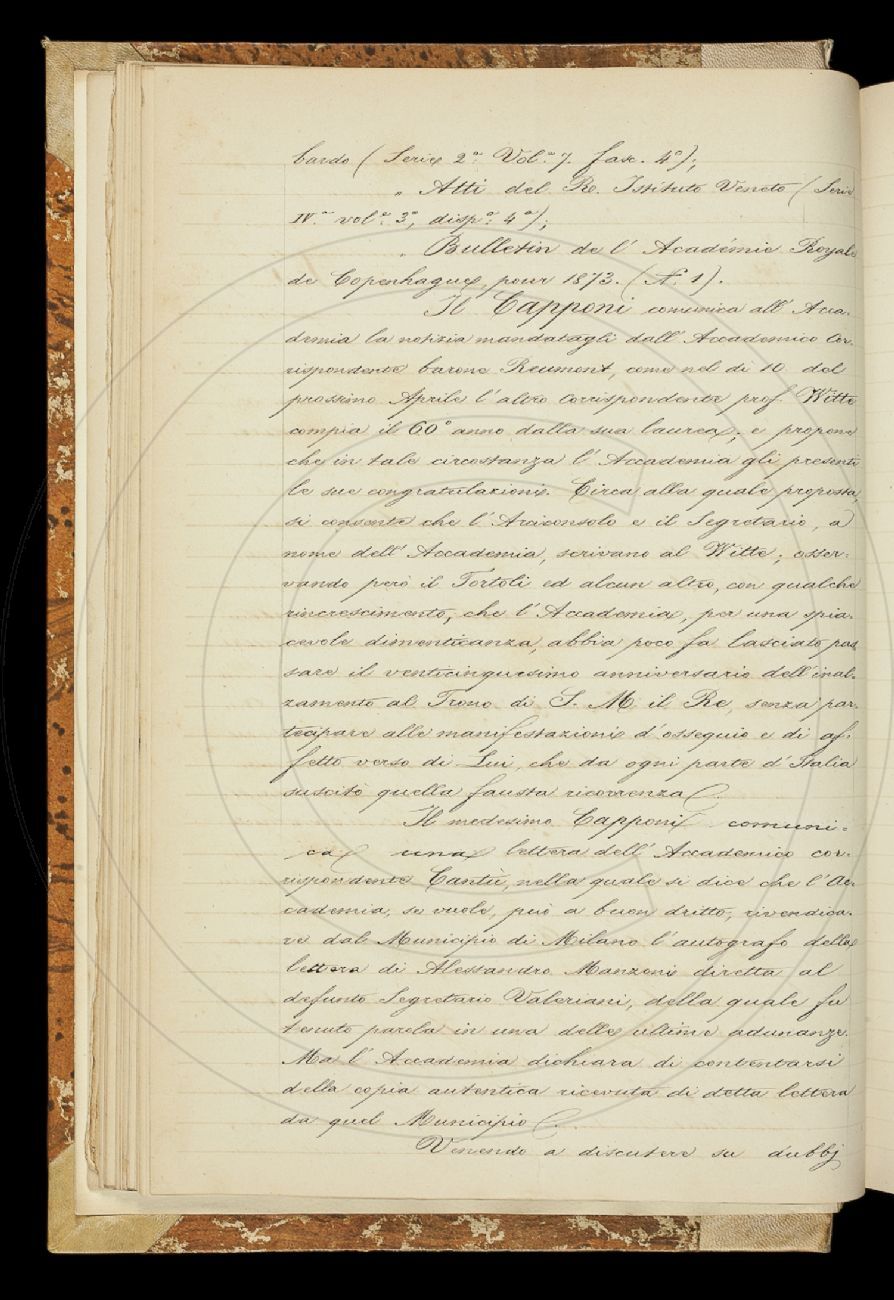 bardo (Serie 2ª. Vol.º 7. fasc. 4º);
" Atti del R. Istituto Veneto (Serie
IV.ª vol.º 3º, disp.ª 4ª);
" Bulletin de l'Académie Royale
de Copenhague, pour 1873. (N. 1).
Il Capponi comunica all'Acca-
demia la notizia mandatagli dall'Accademico Cor-
rispondente barone Reumont, come nel dì 10 del
prossimo Aprile l'altro Corrispondente prof. Witte
compia il 60º anno dalla sua laurea; e propone
che in tale circostanza l'Accademia gli presenti
le sue congratulazioni. Circa alla quale proposta,
si consente che l'Arciconsolo e il Segretario, a
nome dell'Accademia, scrivano al Witte; osser-
vando però il Tortoli ed alcun altro, con qualche
rincrescimento, che l'Accademia, per una spia-
cevole dimenticanza, abbia poco fa lasciato pas
sare il venticinquesimo anniversario dell'inal-
zamento al Trono di S. M. il Re, senza par-
tecipare alle manifestazioni d'ossequio e di af-
fetto verso di Lui, che da ogni parte d'Italia
suscitò quella fausta ricorrenza.
Il medesimo Capponi comuni-
ca una lettera dell'Accademico cor-
rispondente Cantù, nella quale si dice che l'Ac-
cademia, se vuole, può a buon dritto, rivendica-
re dal Municipio di Milano l'autografo della
lettera di Alessandro Manzoni diretta al
defunto Segretario Valeriani, della quale fu
tenuto parola in una delle ultime adunanze.
Ma l'Accademia dichiara di contentarsi
della copia autentica ricevuta di detta lettera
da quel Municipio.
Venendo a discutere su dubbj